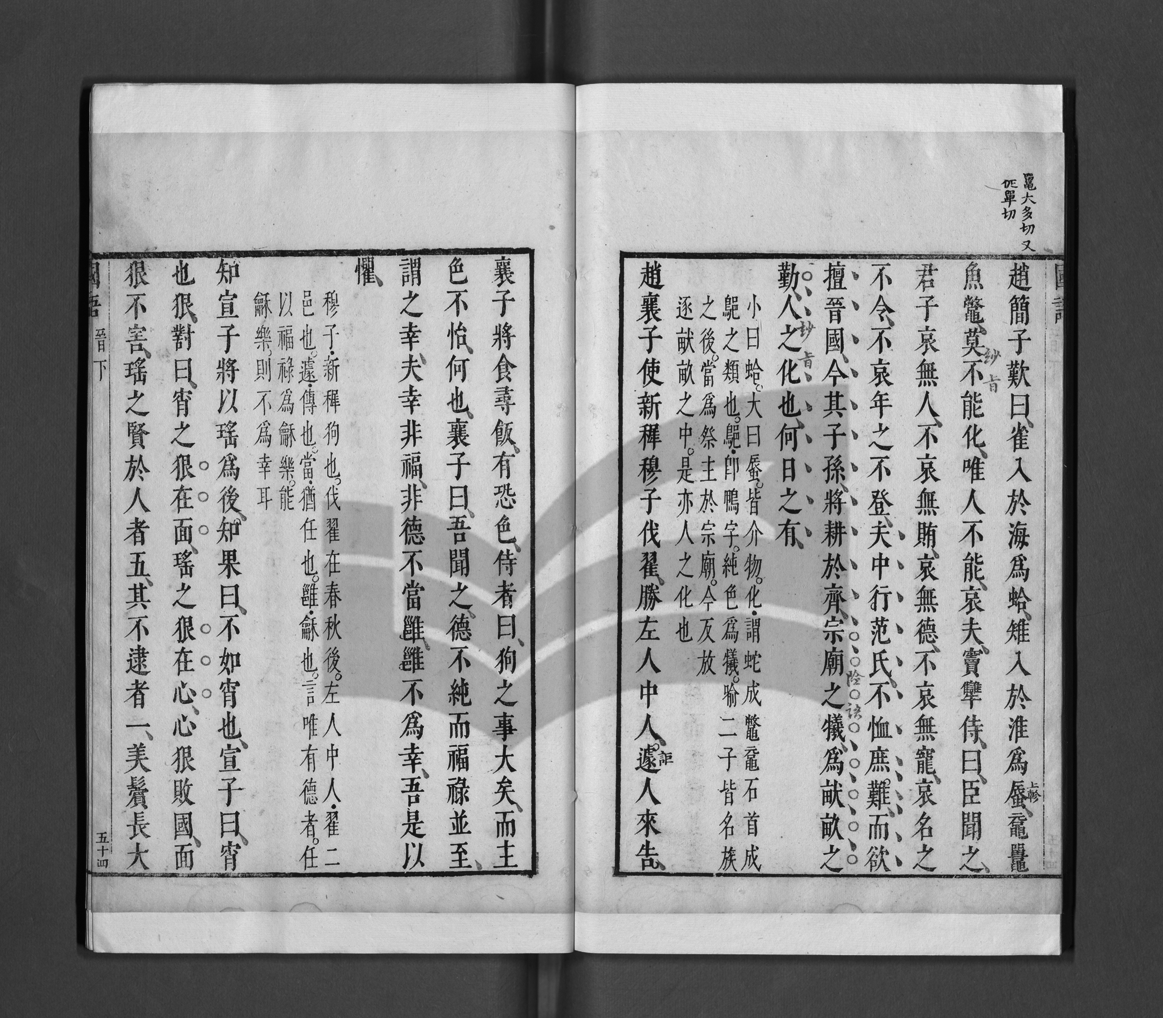 鼉大多切又
佗單切
國語
趙簡子歎曰、雀入於海為蛤、雉入於淮為蜃、黿鼉
上軫
魚鼈、莫不能化、唯人不能、哀夫、竇犨侍、曰、臣聞之、
妙旨
君子哀無人、不哀無賄、哀無德、不哀無寵、哀名之
不令、不哀年之不登、夫中行范氏、不恤庶難、而欲
擅晉國、今其子孫、將耕於齊、宗廟之犧、為畎畝之
勤、人之化也、何日之有、
妙旨
小曰蛤。大曰蜃。皆介物。化・謂蛇成鼈黿石首成
䴈之類也。䴈・卽鴨字。純色為犧。喻二子皆名族
之後。當為祭主於宗廟。今反放
逐畎畝之中。是亦人之化也
趙襄子使新穉穆子伐翟、勝左人中人。遽人來告、
詎
襄子將食尋飯、有恐色、侍者曰、狗之事大矣、而主
色不怡、何也、襄子曰、吾聞之、德不純而福祿並至、
謂之幸、夫幸非福、非德不當雝、雝不為幸、吾是以
懼、
穆子・新穉狗也。伐翟在春秋後。左人中人・翟二
邑也。遽・傳也。當・猶任也。雝・龢也。言唯有德者。任
以福祿為龢樂。能
龢樂。則不為幸耳
知宣子將以瑤為後、知果曰、不如宵也、宣子曰、宵
也狠、對曰、宵之狠在面、瑤之狠在心、心狠敗國、面
狠不害、瑤之賢於人者五、其不逮者一、美鬢長大
國語 晉下 五十四